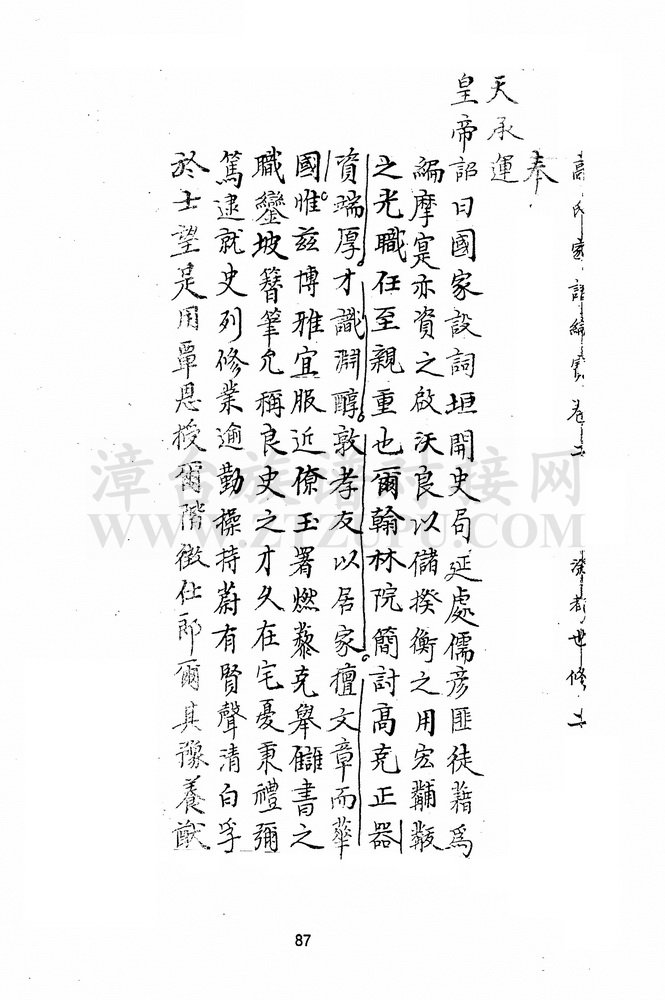 高氏家譜編實卷之二
濟都世修之
奉
天承運
皇帝詔曰國家設詞垣開史局延處儒彥匪徒藉為
編摩寔亦資之啟沃良以儲揆衡之用宏黼黻
之光職任至親重也爾翰林院簡討高克正器
資端厚才識淵醇敦孝友以居家擅文章而華
國惟茲博雅宜服近僚玉署燃藜克舉讎書之
職鑾坡簪筆允稱良史之才久在宅憂秉禮彌
篤逮就史列修業逾勤操持蔚有賢聲清白孚
於士望是用覃恩授爾階徵仕郎爾其豫養猷
漳台族譜對接网
WWW.ZTZUPU.COM
87